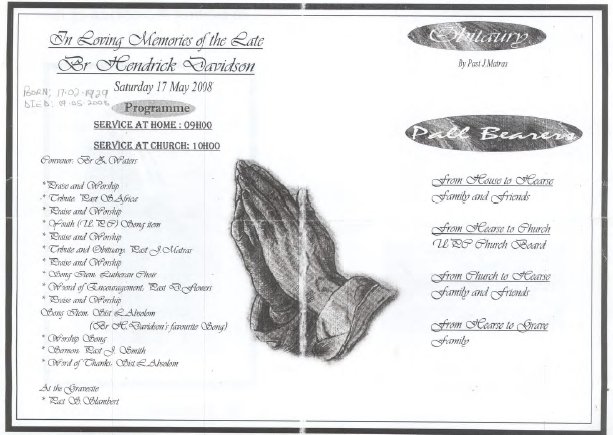 In Loving Memories of the Late
Br Hendrick Davidson
Saturday 17 May 2008
BORN; 17.02.1929
DIED: 07.05.2008
Programme
SERVICE AT HOME : 09H00
SERVICE AT CHURCH: 10H00
Convenor: Br Z. Waters
* Praise and Worship
* Tribute: Past S. Africa
* Praise and Worship
* Youth (U.P.C) Song item
* Praise and Worship
* Tribute and Obituary: Past J. Matras
* Praise and Worship
* Song Item: Lutheran Choir
* Word of Encouragement: Past D. Flowers
* Praise and Worship
Song Item: Sist L Absolom
(Br H. Davidson's favourite Song)
* Worship Song
* Sermon: Past J. Smith
* Word of Thanks: Sist L Absolom
At the Gravesite
* Past S. Slambert
Obituary
By Past J Matras
Pall Bearers
From House to Hearse
Family and Friends
From Hearse to Church
U.P.C Church Board
From Church to Hearse
Family and Friends
From Hearse to Grave
Family